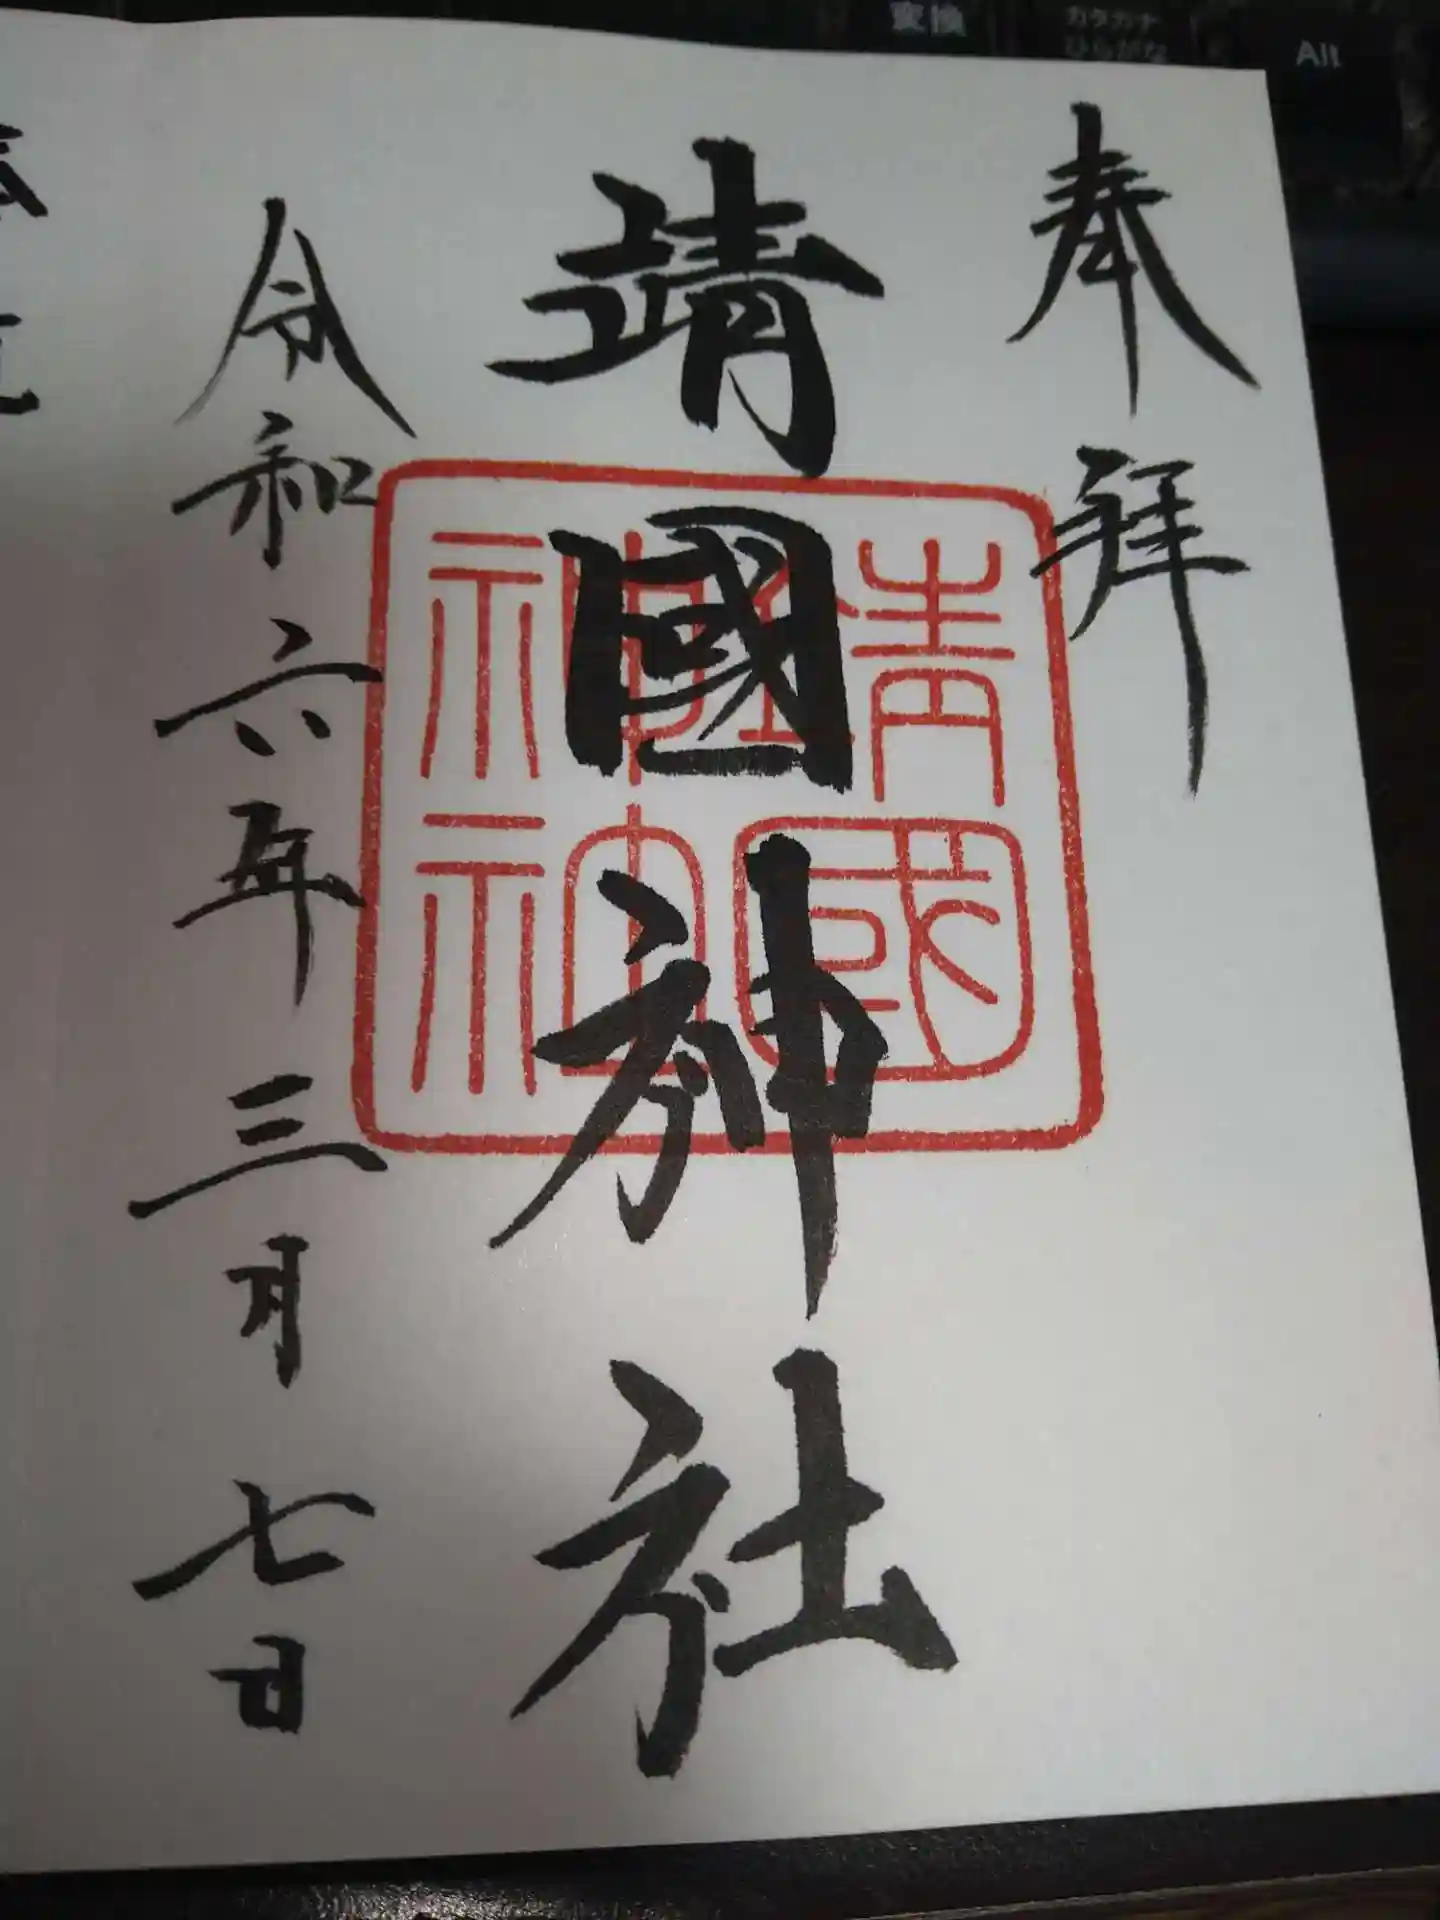 変換
カタカナ
ひらがな
Alt
奉拝
靖國神社
靖國
神社
令和六年三月七日